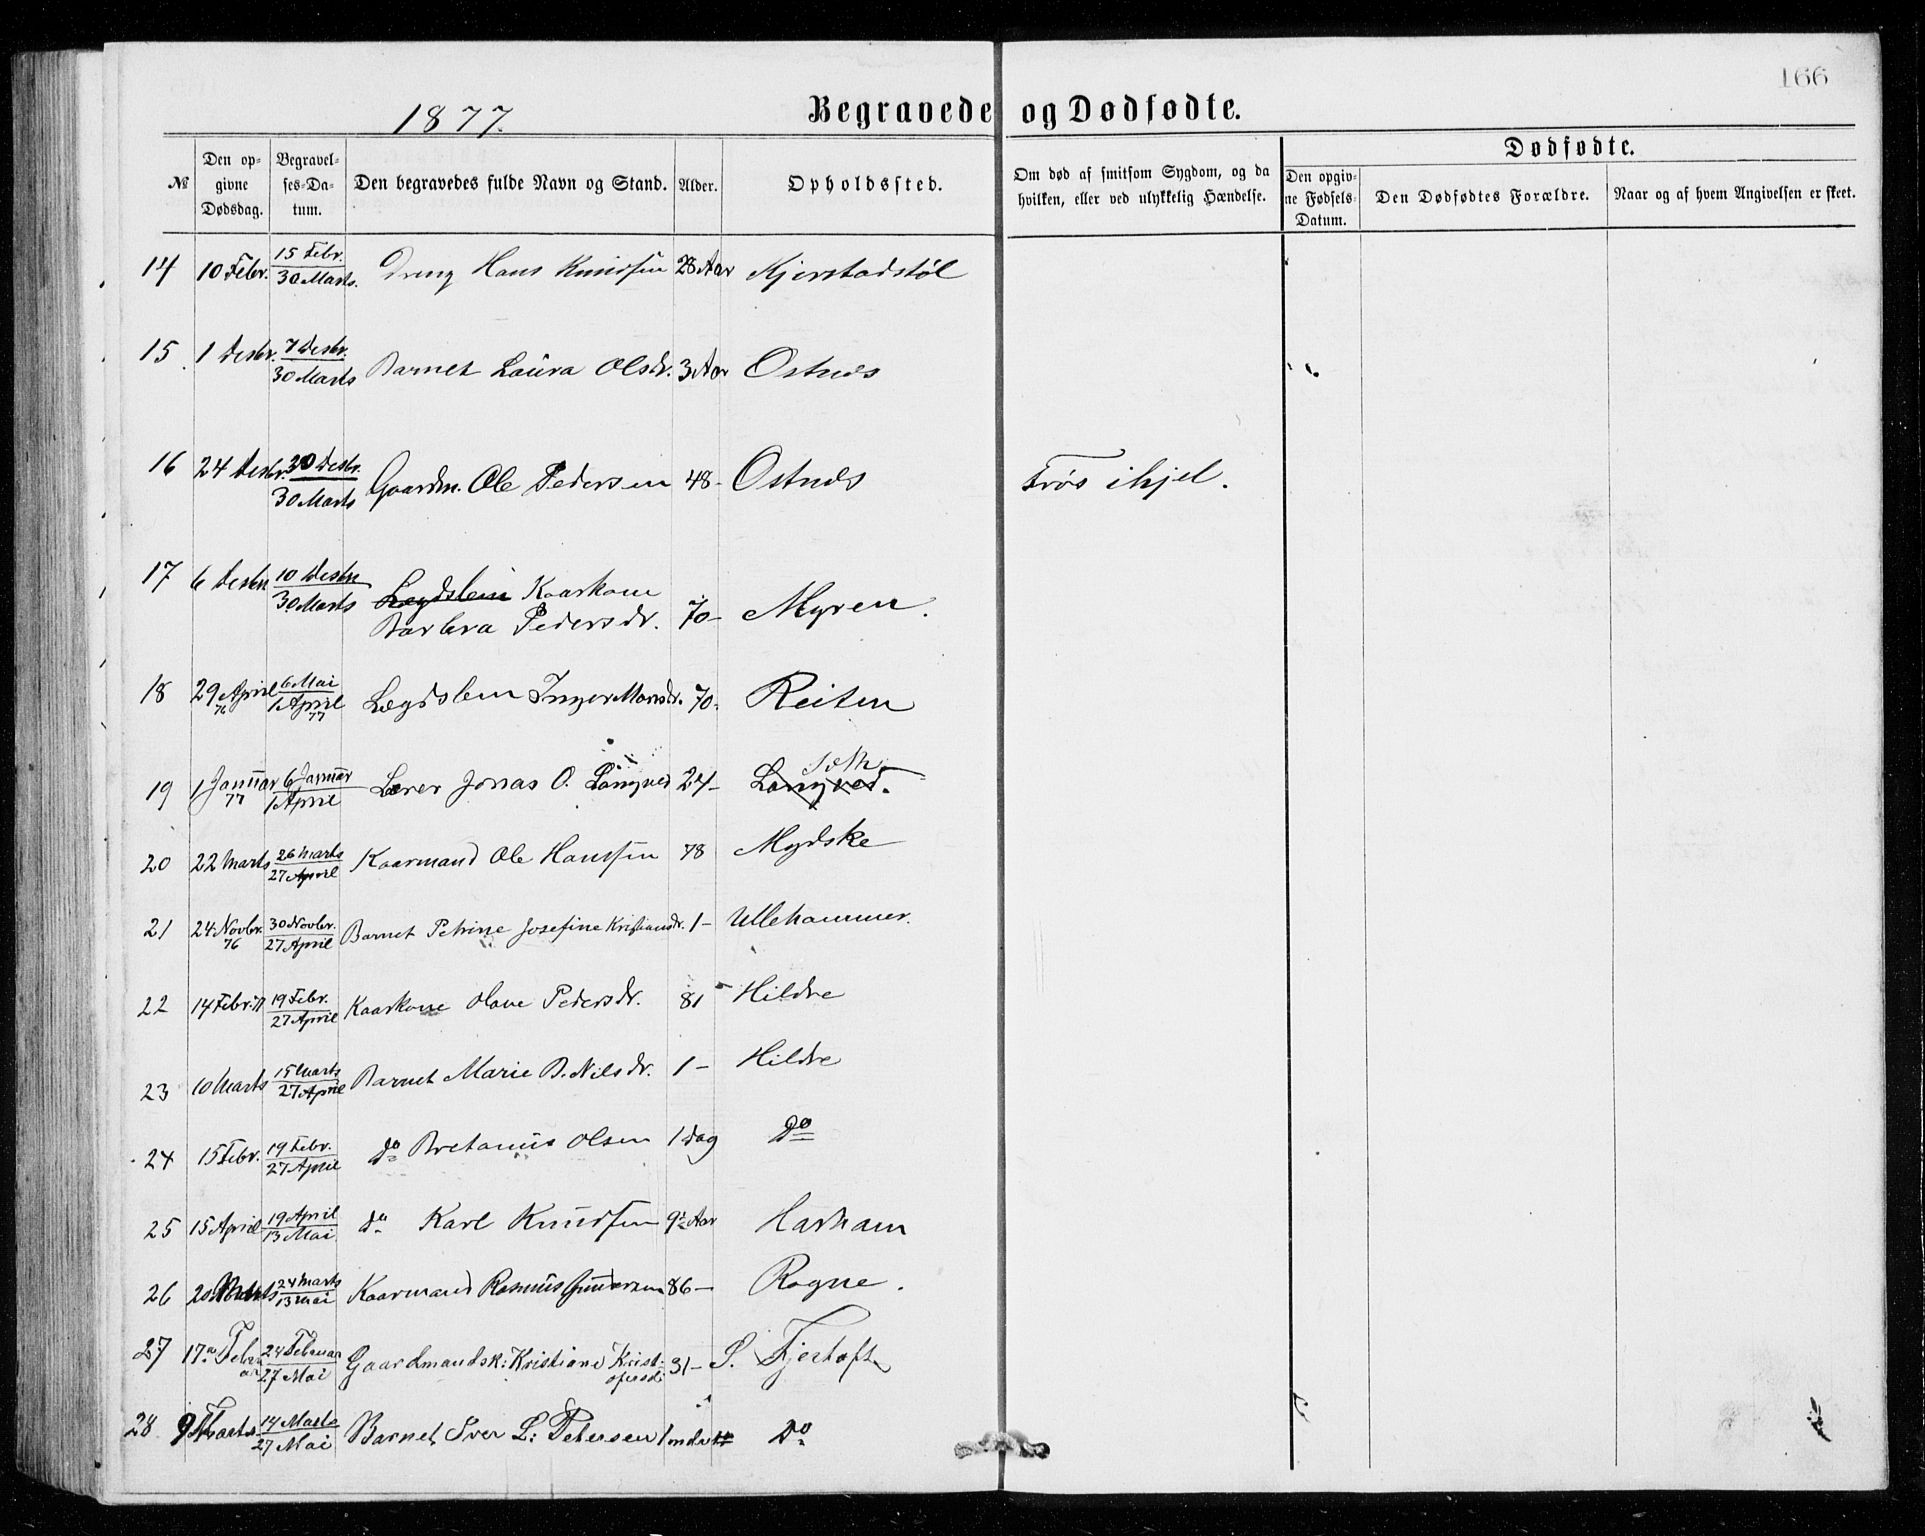 166
1877.
Begravede og Dødfødte.
№
Den opgivne Dødsdag.
Begravelses-Datum.
Den begravedes fulde Navn og Stand.
Alder.
Opholdssted.
Om død af smitsom Sygdom, og da hvilken, eller ved ulykkelig Hændelse.
Dødfødte.
Den opgivne Fødsels-Datum.
Den Dødfødtes Forældre.
Naar og af hvem Angivelsen er skeet.
14 10 Febr. 15 Febr. 30 Marts. Dreng Hans Knudsen 28 Aar Kjerstadstøl
15 1 Desbr. 7 Desbr. 30 Marts Barnet Laura Olsdr. 3 Aar Ostnes
16 24 Desbr. 30 Desbr. 30 Marts Gaardm. Ole Pedersen 48- Ostnes Frøs ihjel.
17 6 Desbr 10 Desbr 30 Marts Lægdslem Kaarkone
Barbra Pedersdr. 70- Myren.
18 29 April 76 6 Mai 1 April 77 Lægdslem Inger Monsdr. 70- Reiten
19 1 Januar 77 6 Januar 1 April Lærer Jonas O. Longved 24- Longved.
20 22 Marts 26 Marts 27 April Kaarmand Ole Hanssen 78 Mydske
21 24 Novbr. 76 30 Novbr. 27 April Barnet Petrine Josefine Kristiansdr. 1- Ullehammer.
22 14 Febr. 77 19 Febr. 27 April Kaarkone Olave Pedersdr. 81 Hildre
23 10 Marts 15 Marts 27 April Barnet Marie B. Nilsdr. 1- Hildre
24 15 Febr. 19 Febr. 27 April do Bretanus Olsen 1 Dag Do
25 15 April 19 April 13 Mai do Karl Knudsen 9½ Aar Harham
26 20 Marts 24 Marts 13 Mai Kaarmand Rasmus Gundersen 86- Rogne.
27 17de Februar 24 Februar 27 Mai Gaardmandsk: Kristiane Kristofersd: 31- S. Fjertoft
28 9 Marts 14 Marts 27 Mai Barnet Iver L: Petersen 1 mdr Do